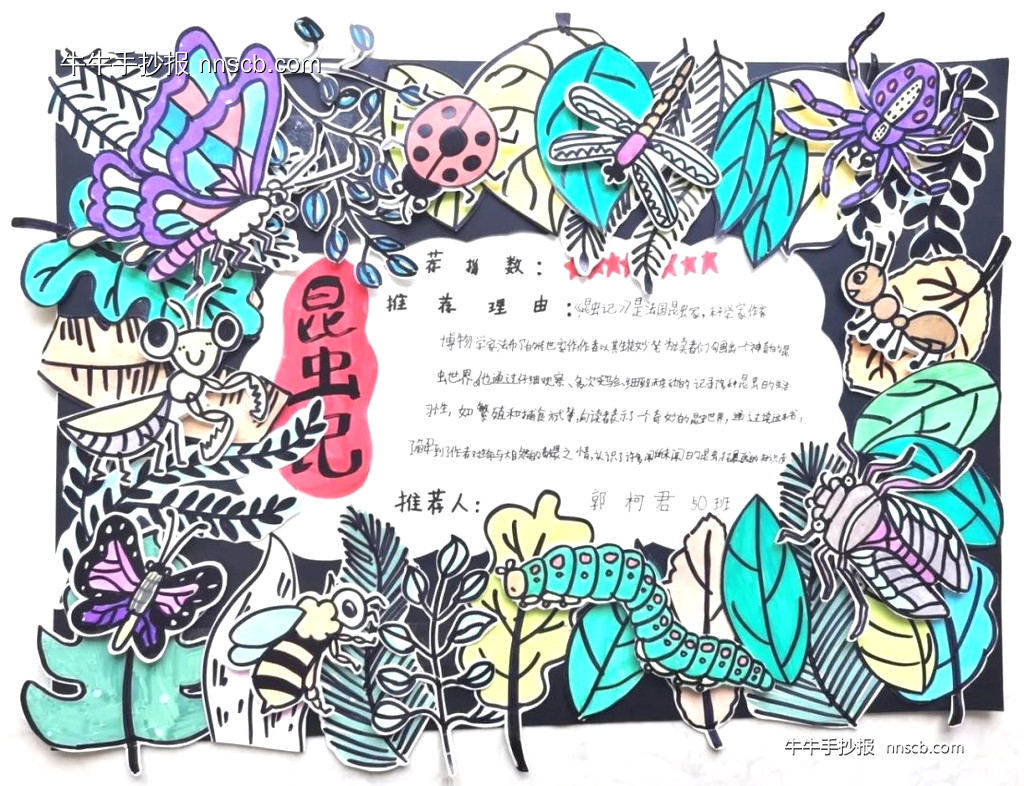 牛牛手抄报 nnscb.com
昆虫记
荐指数：
推荐理由：《昆虫记》是法国昆虫家，科学家作家
博物学家法布尔的传世佳作作者以其生花妙笔为读者们勾画出一个神奇的昆
虫世界，他通过仔细观察、多次实验，细致生动的记录各种昆虫的生活
习性，如繁殖和捕食等，向读者展示了一个奇妙的昆虫世界，通过读这本书，
了解到了作者对生命与大自然的热爱之情，认识了许多
推荐人：郭柯君 50班
牛牛手抄报 nnscb.com